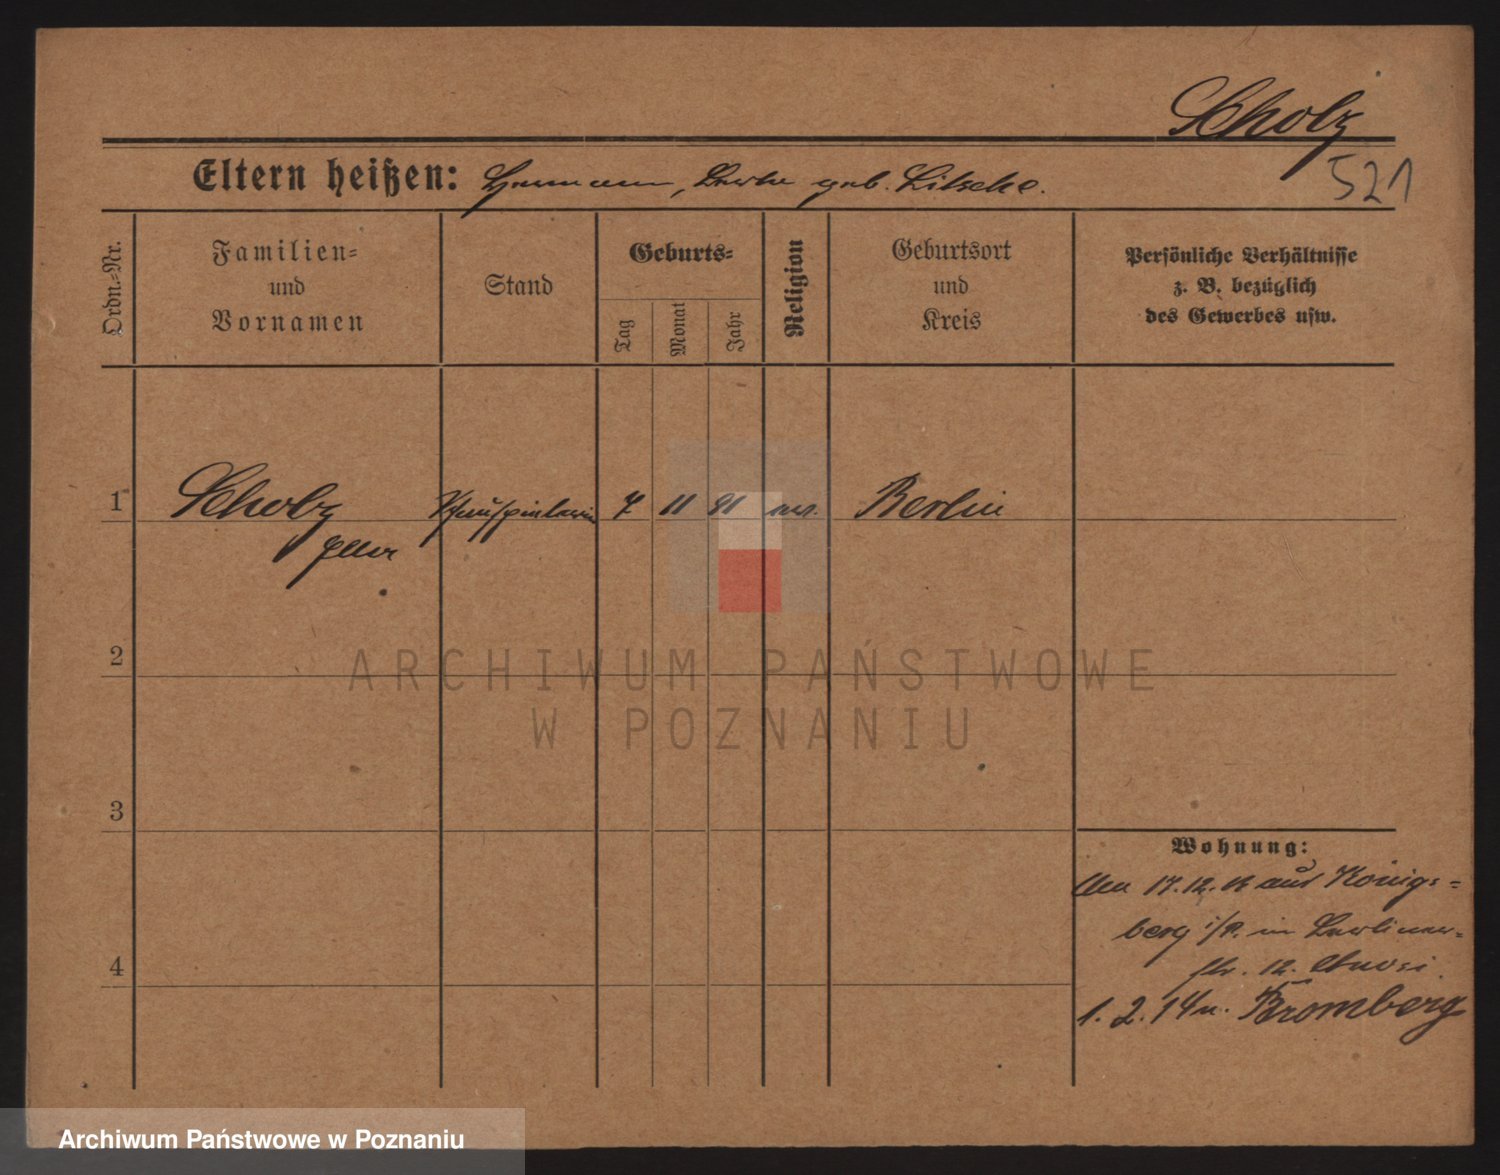 Scholz
Eltern heißen: Hermann, Berta geb. Litschke.
521
Ordn.-Nr.
Familien-
und
Vornamen
Stand
Geburts-
Tag
Monat
Jahr
Religion
Geburtsort
und
Kreis
Persönliche Verhältnisse
z. B. bezüglich
des Gewerbes usw.
1
Scholz
Schauspielerin
7
11
91
ev.
Berlin
2
ARCHIWUM PAŃSTWOWE
W POZNANIU
3
Wohnung:
17.12.13 aus Königs-
berg i/P. in Berliner-
str. 12.
4
1.2.14 n. Bromberg
Archiwum Państwowe w Poznaniu